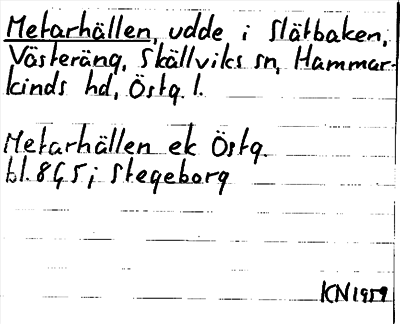 Metarhällen, udde i Slätbaken,
Västeräng, Skällviks sn, Hammar-
kinds hd, Östg. l.
Metarhällen ek Östg.
bl. 8G5; Stegeborg
KN 1959